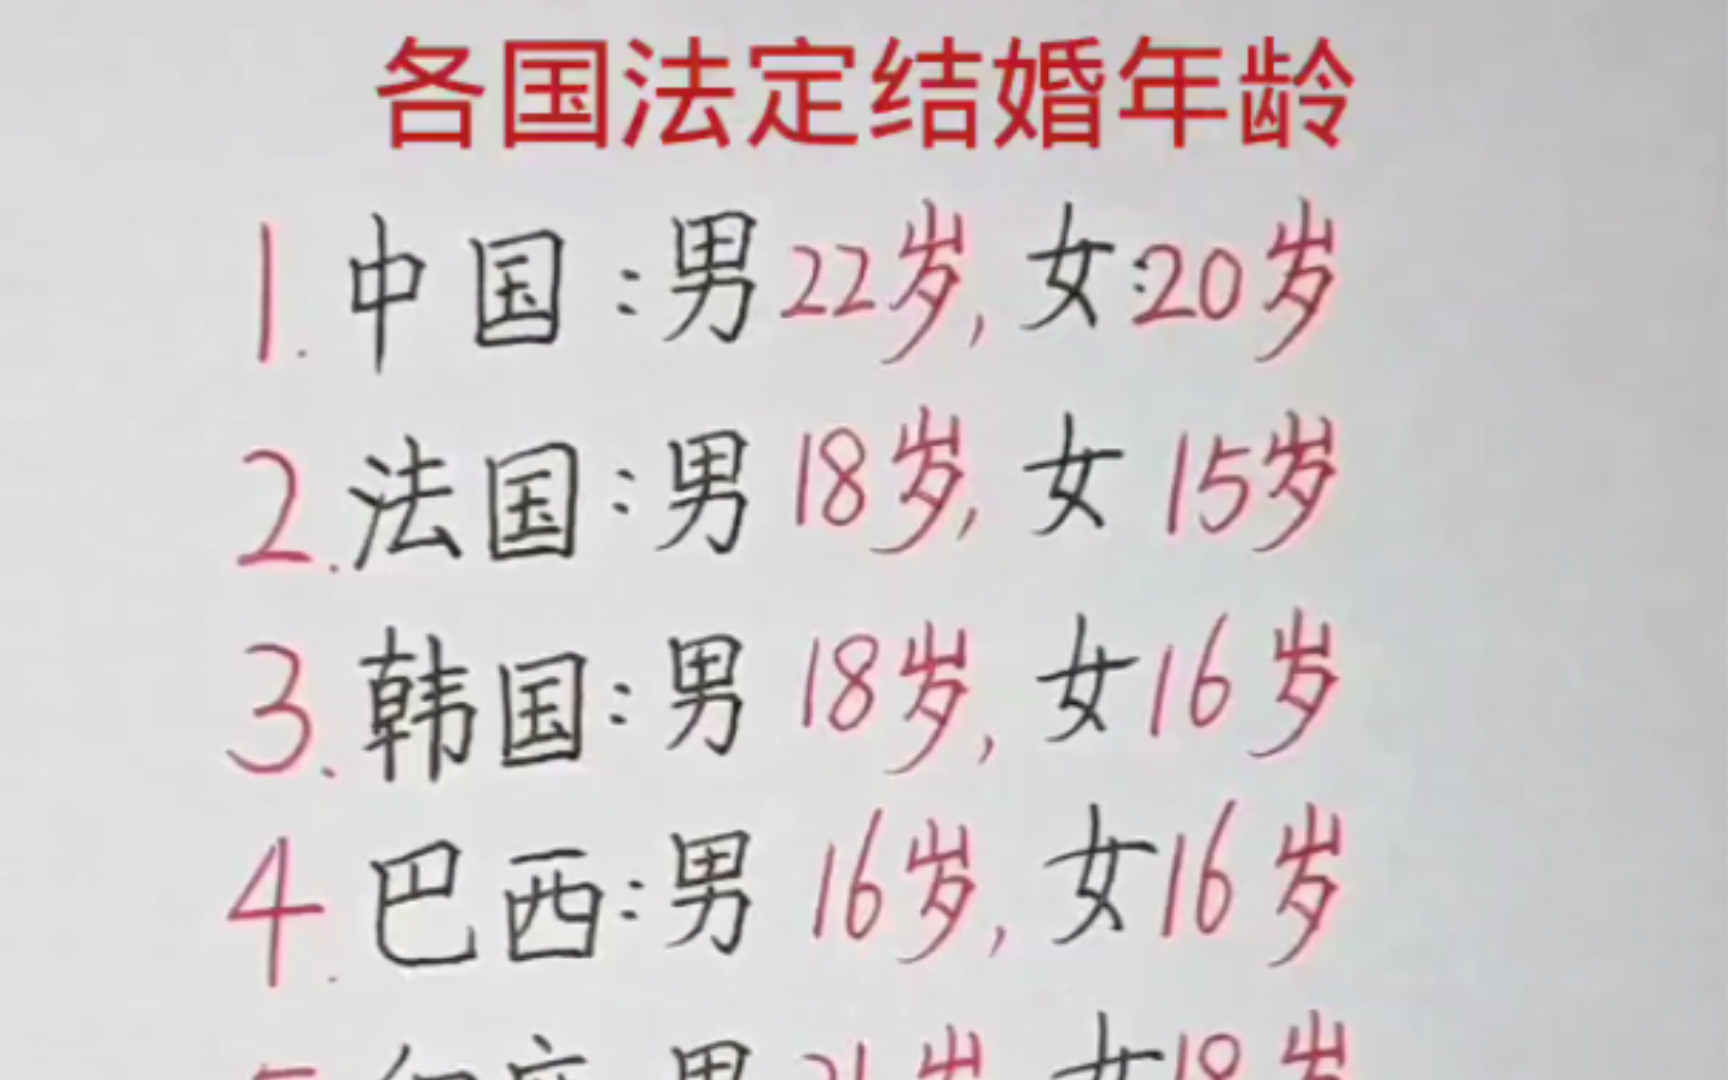 各国法定结婚年龄
1.中国:男22岁,女:20岁
2.法国:男18岁,女15岁
3.韩国:男18岁,女16岁
4.巴西:男16岁,女16岁
男21岁 女18岁